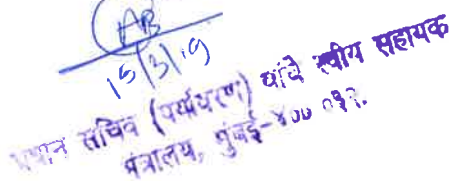 AB
15/3/19
प्रधान सचिव (पर्यावरण) यांचे स्वीय सहायक
मंत्रालय, मुंबई-४०० ०३२.